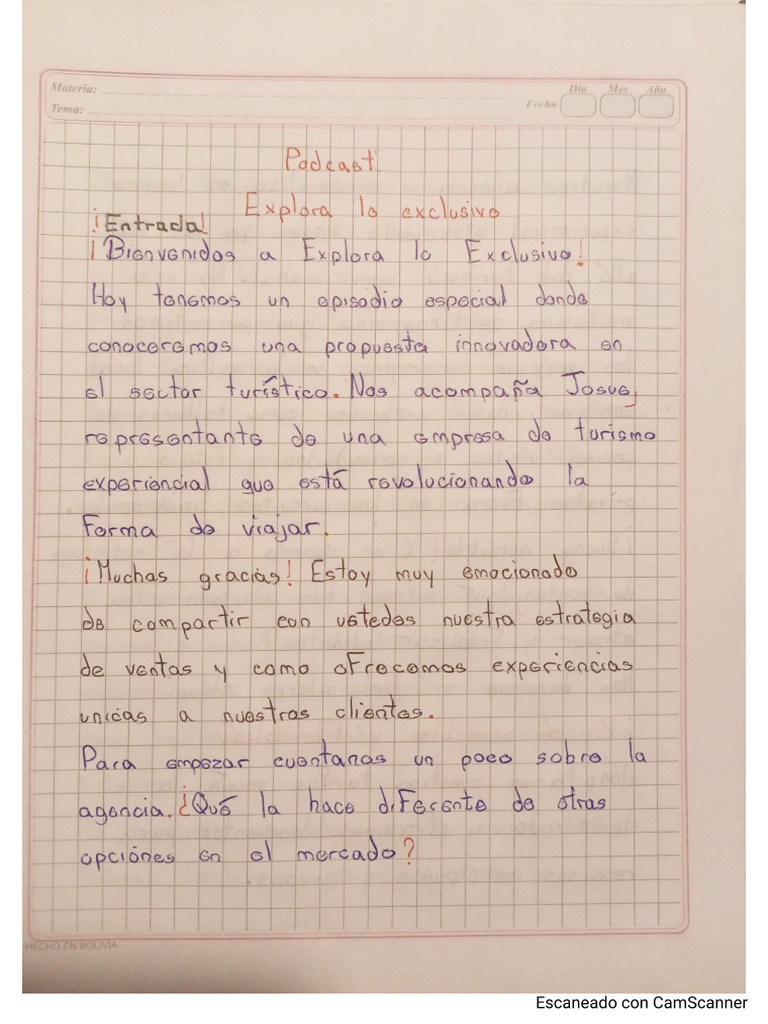 Materia:
Día Mes Año
Tema:
Fecha
Podcast
Explora lo exclusivo
¡Entrada!
¡Bienvenidos a Explora lo Exclusivo!
Hoy tenemos un episodio especial donde
conoceremos una propuesta innovadora en
el sector turístico. Nos acompaña Josue,
representante de una empresa de turismo
experiencial que está revolucionando la
forma de viajar.
¡Muchas gracias! Estoy muy emocionado
de compartir con ustedes nuestra estrategia
de ventas y como ofrecemos experiencias
unicas a nuestros clientes.
Para empezar cuentanos un poco sobre la
agencia. ¿Qué la hace diferente de otras
opciónes en el mercado?
HECHO EN BOLIVIA
Escaneado con CamScanner